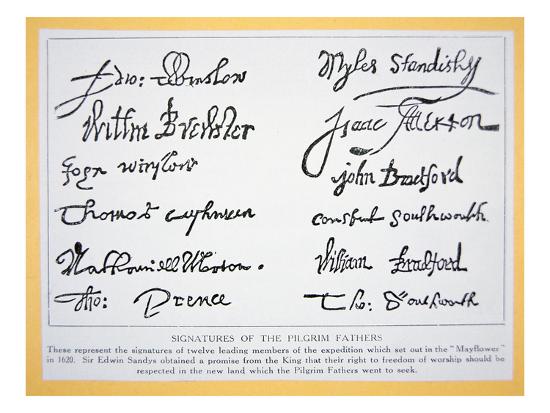 Edw: Winslow
Myles Standish
Willm Brewster
Isaac Allerton
John Winslow
John Bradford
Thomas Cushman
Constant Southworth
Nathaniell Morton.
William Bradford
Tho: Prence
Tho: Southworth
SIGNATURES OF THE PILGRIM FATHERS
These represent the signatures of twelve leading members of the expedition which set out in the "Mayflower"
in 1620. Sir Edwin Sandys obtained a promise from the King that their right to freedom of worship should be
respected in the new land which the Pilgrim Fathers went to seek.